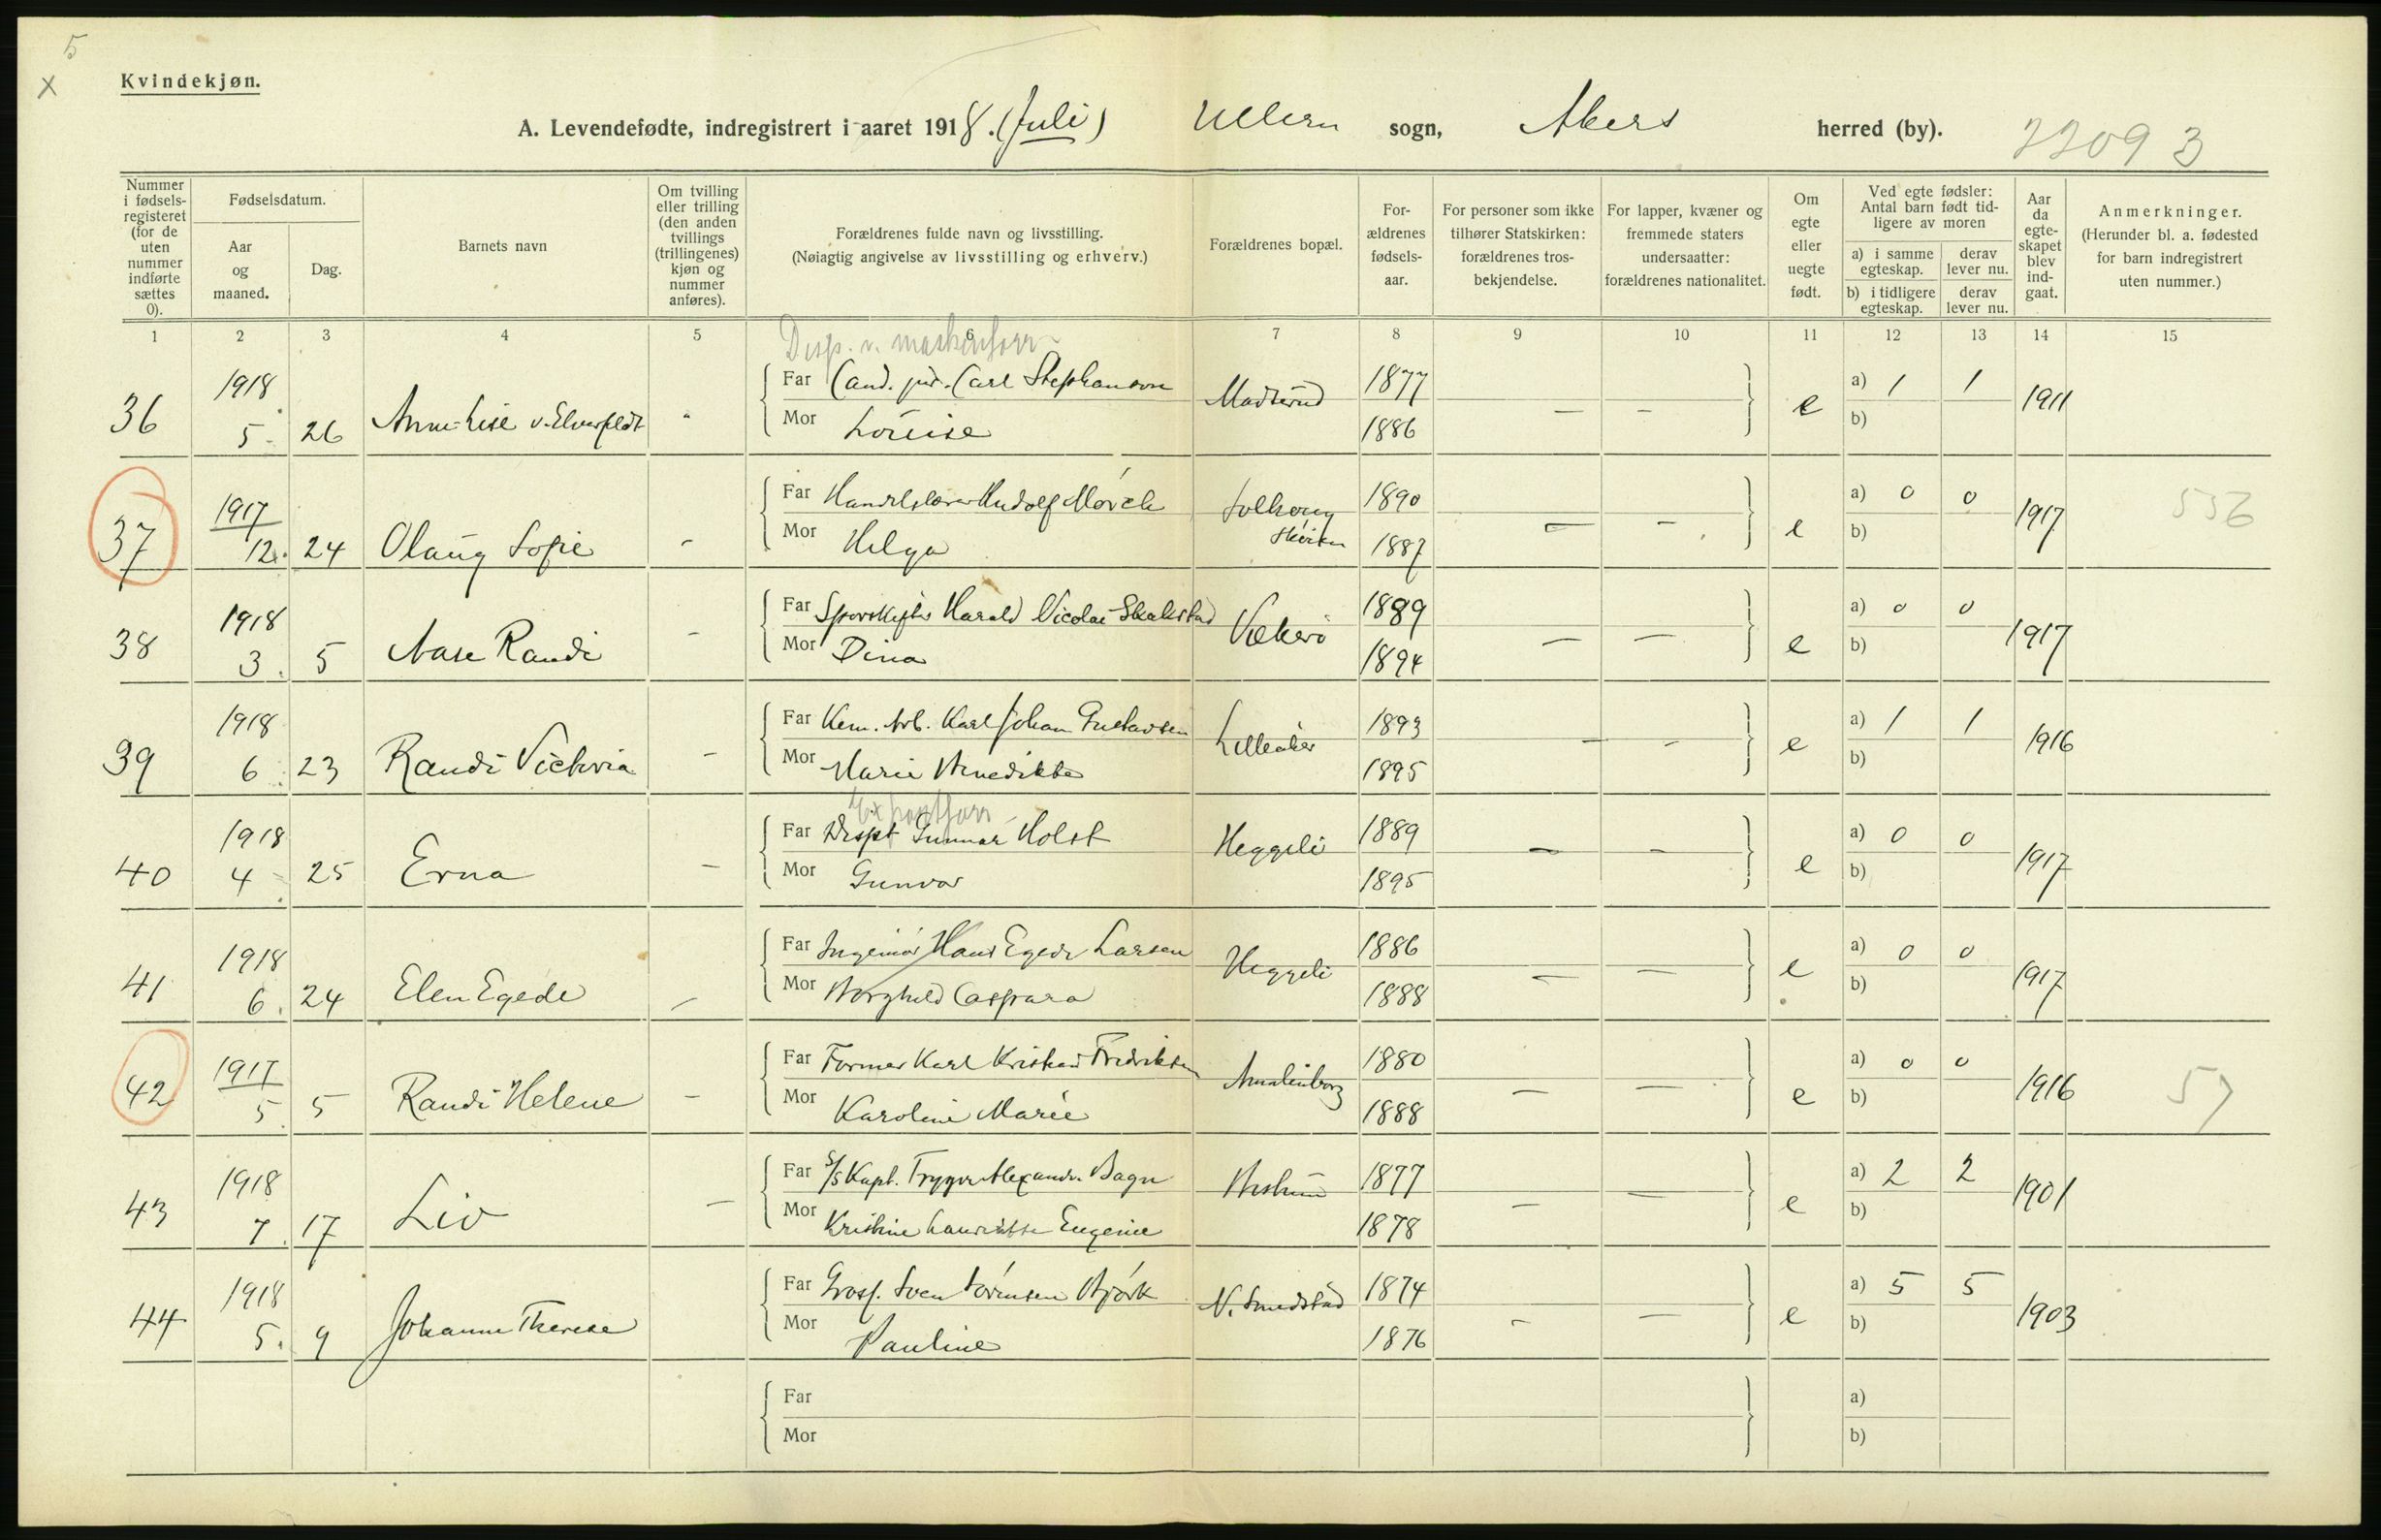 5
x
Kvindekjøn.
A. Levendefødte, indregistrert i aaret 1918. (Juli) Ullern sogn, Akers herred (by).
2209 3
Nummer i fødselsregisteret (for de uten nummer indførte sættes 0).
Fødselsdatum.
Aar og maaned.
Dag.
Barnets navn
Om tvilling eller trilling (den anden tvillings (trillingenes) kjøn og nummer anføres).
Forældrenes fulde navn og livsstilling.
(Nøiagtig angivelse av livsstilling og erhverv.)
Forældrenes bopæl.
Forældrenes fødselsaar.
For personer som ikke tilhører Statskirken: forældrenes trosbekjendelse.
For lapper, kvæner og fremmede staters undersaatter: forældrenes nationalitet.
Om egte eller uegte født.
Ved egte fødsler: Antal barn født tidligere av moren
a) i samme egteskap. derav lever nu.
b) i tidligere egteskap. derav lever nu.
Aar da egteskapet blev indgaat.
Anmerkninger.
(Herunder bl. a. fødested for barn indregistrert uten nummer.)
1 2 3 4 5 6 7 8 9 10 11 12 13 14 15
Disp. v. maskinforr.
36 1918 5. 26 Anne-Lise v. Elverfeldt - Far Cand. jur. Carl Stephanson Madserud 1877 — — e a) 1 1 1911
Mor Louise 1886 b)
37 1917 12. 24 Olaug Sofie - Far Handelslærer Rudolf Mørch Solhaug Skøien 1890 — — e a) 0 0 1917 556
Mor Helga 1887 b)
38 1918 3. 5 Aase Randi - Far Sporskifter Harald Nicolai Skalstad Vækerø 1889 — — e a) 0 0 1917
Mor Dina 1894 b)
39 1918 6. 23 Randi Victoria - Far Kem. Arb. Karl Johan Gustavsen Lilleaker 1893 — — e a) 1 1 1916
Mor Marie Benedikte 1895 b)
Exportforr.
40 1918 4 25 Erna - Far Disp. Gunnar Holst Heggeli 1889 — — e a) 0 0 1917
Mor Gunvor 1895 b)
41 1918 6. 24 Elen Egede - Far Ingeniør Hans Egede Larsen Heggeli 1886 — — e a) 0 0 1917
Mor Borghild Caspara 1888 b)
42 1917 5. 5 Randi Helene - Far Former Karl Kristian Fredriksen Amalienborg 1880 — — e a) 0 0 1916 57
Mor Karoline Marie 1888 b)
43 1918 7. 17 Liv - Far S/S Kapt. Trygve Alexander Bagn Bestum 1877 — — e a) 2 2 1901
Mor Kristine Lauritsse Eugenie 1878 b)
44 1918 5. 9 Johanne Therese Far Gross. Sven Sørensen Bjørk N. Smedstad 1874 — — e a) 5 5 1903
Mor Pauline 1876 b)
Far a)
Mor b)